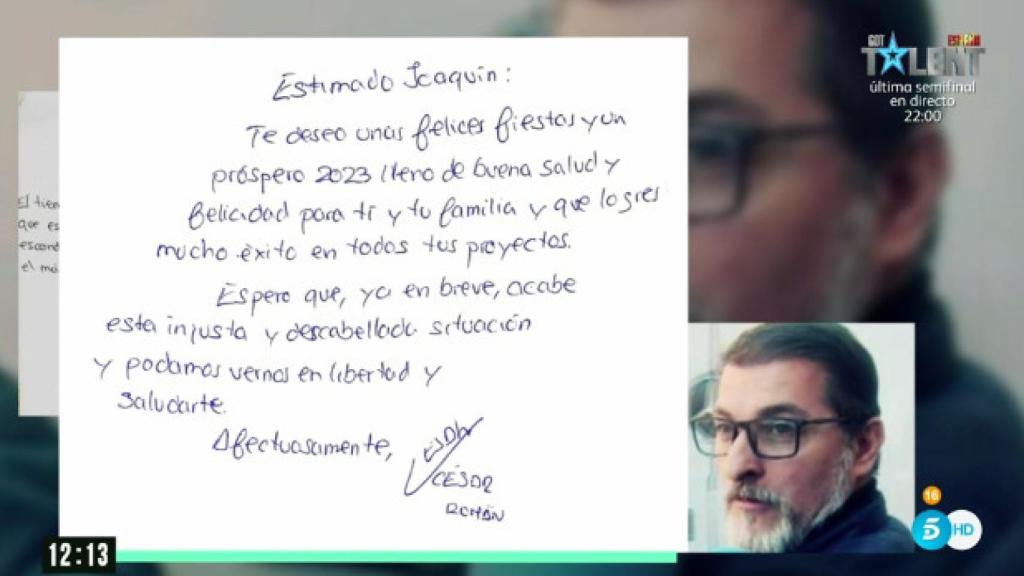 Estimado Joaquín:
Te deseo unas felices fiestas y un
próspero 2023 lleno de buena salud y
felicidad para ti y tu familia y que logres
mucho éxito en todos tus proyectos.
Espero que, ya en breve, acabe
esta injusta y descabellada situación
y podamos vernos en libertad y
saludarte.
Afectuosamente,
CÉSAR
ROMÁN
El tien
que es
escond
el má
GOT ESPAÑA
TALENT
última semifinal
en directo
22:00
16
5 HD
12:13